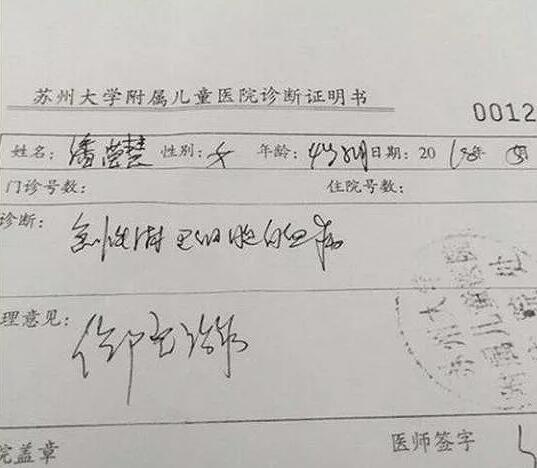 苏州大学附属儿童医院诊断证明书
0012
姓名: 潘莹慧 性别: 女 年龄: 4岁8月 日期: 20
门诊号数: 住院号数:
诊断: 急性淋巴细胞白血病
理意见: 住院治疗
苏州大
院盖章 医师签字